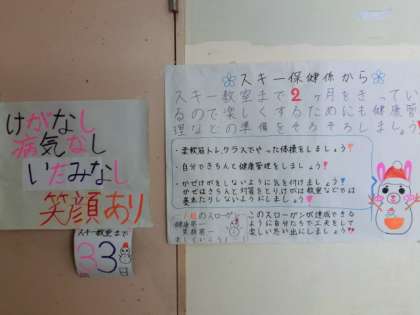 けがなし
病気なし
いたみなし
笑顔あり
スキー教室まで
33日
スキー保健係から
スキー教室まで2ヶ月をきってい
るので楽しくするためにも健康管
理などの準備をそろそろしましょう!
・柔軟筋トレクラスでやった体操をしましょう!
・自分できちんと健康管理をしましょう!
・かぜけがをしないように気を付けましょう!
のスローガン
このスローガンが達成できる
ように自分たちで工夫をして
楽しい思い出にしましょう!
健康第一
笑顔第一